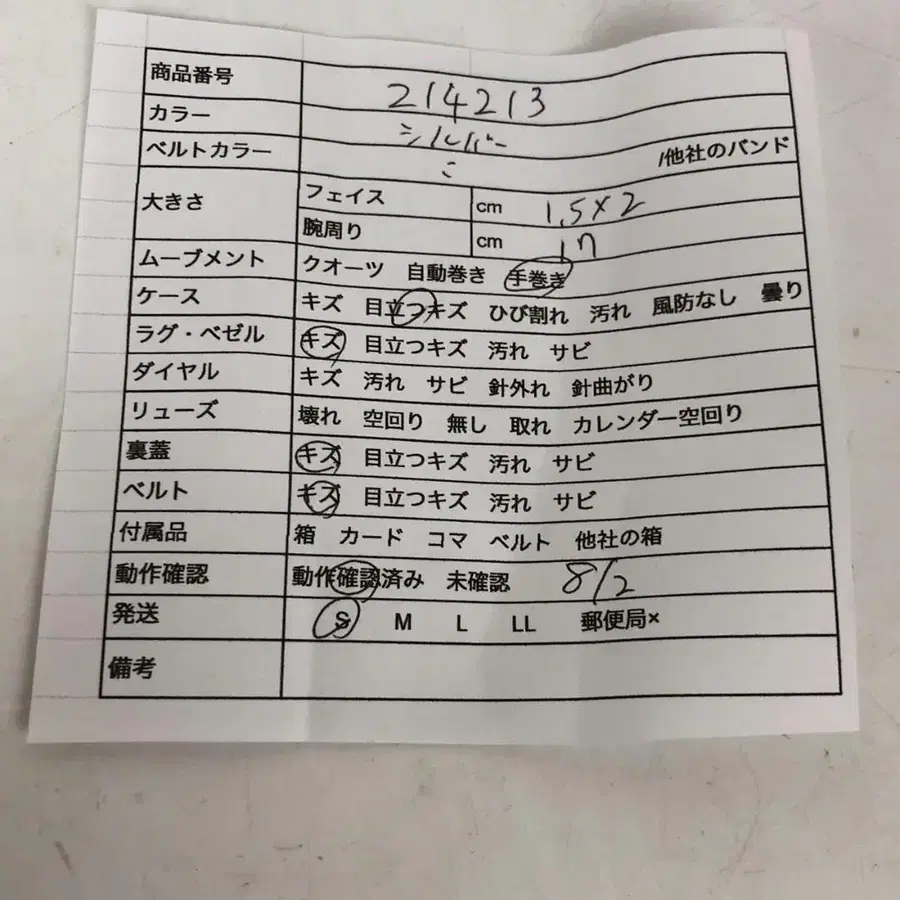 商品番号 214213
カラー シルバー
ベルトカラー 〃 /他社のバンド
大きさ フェイス cm 1.5×2
腕周り cm 17
ムーブメント クオーツ 自動巻き 手巻き
ケース キズ 目立つキズ ひび割れ 汚れ 風防なし 曇り
ラグ・ベゼル キズ 目立つキズ 汚れ サビ
ダイヤル キズ 汚れ サビ 針外れ 針曲がり
リューズ 壊れ 空回り 無し 取れ カレンダー空回り
裏蓋 キズ 目立つキズ 汚れ サビ
ベルト キズ 目立つキズ 汚れ サビ
付属品 箱 カード コマ ベルト 他社の箱
動作確認 動作確認済み 未確認 8/2
発送 S M L LL 郵便局×
備考